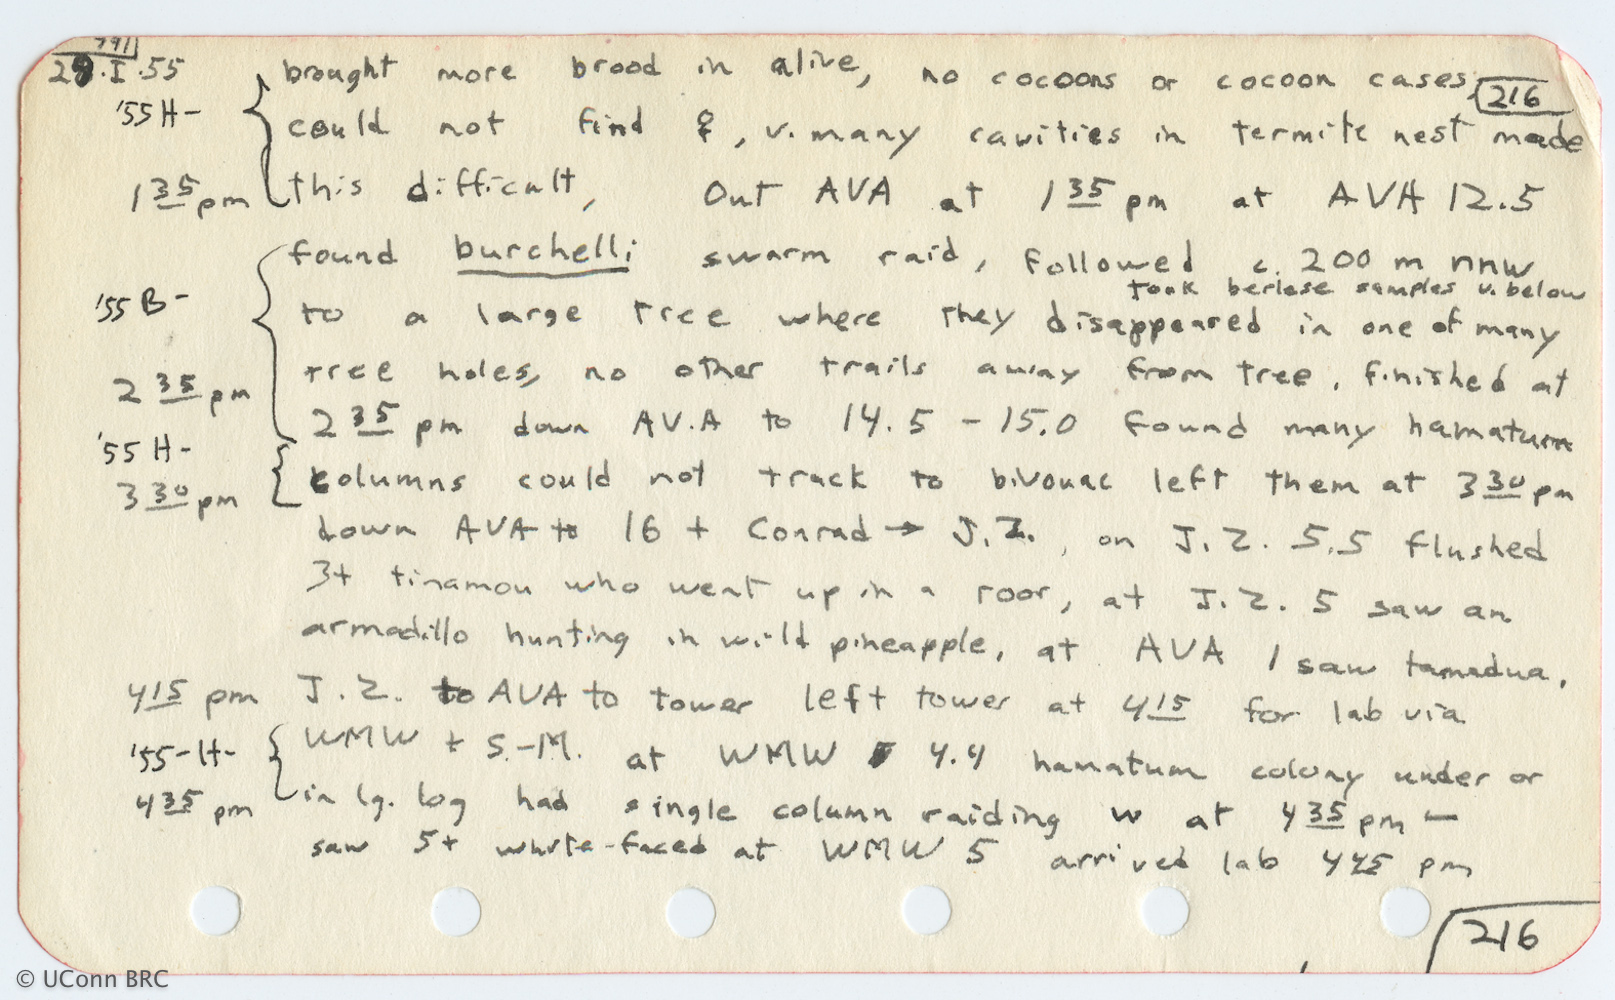 791
29.I.55 brought more brood in alive, no cocoons or cocoon cases,
216
'55 H- could not find ♀, v. many cavities in termite nest made
1 35 pm this difficult, Out AVA at 1 35 pm at AVA 12.5
found burchelli swarm raid, followed c. 200 m nnw
took berlese samples v. below
'55 B- to a large tree where they disappeared in one of many
2 35 pm tree holes, no other trails away from tree, finished at
2 35 pm down AV.A to 14.5 - 15.0 found many hamatum
'55 H-
3 30 pm columns could not track to bivouac left them at 3 30 pm
down AVA to 16 + Conrad → J.Z., on J.Z. 5.5 flushed
3+ tinamou who went up in a roar, at J.Z. 5 saw an
armadillo hunting in wild pineapple, at AVA 1 saw tamadua,
4 15 pm J.Z. to AVA to tower left tower at 4 15 for lab via
'55-H- WMW + S.-M. at WMW 4.4 hamatum colony under or
4 35 pm in lg. log had single column raiding w at 4 35 pm —
saw 5+ white-faced at WMW 5 arrived lab 4 45 pm
216
© UConn BRC